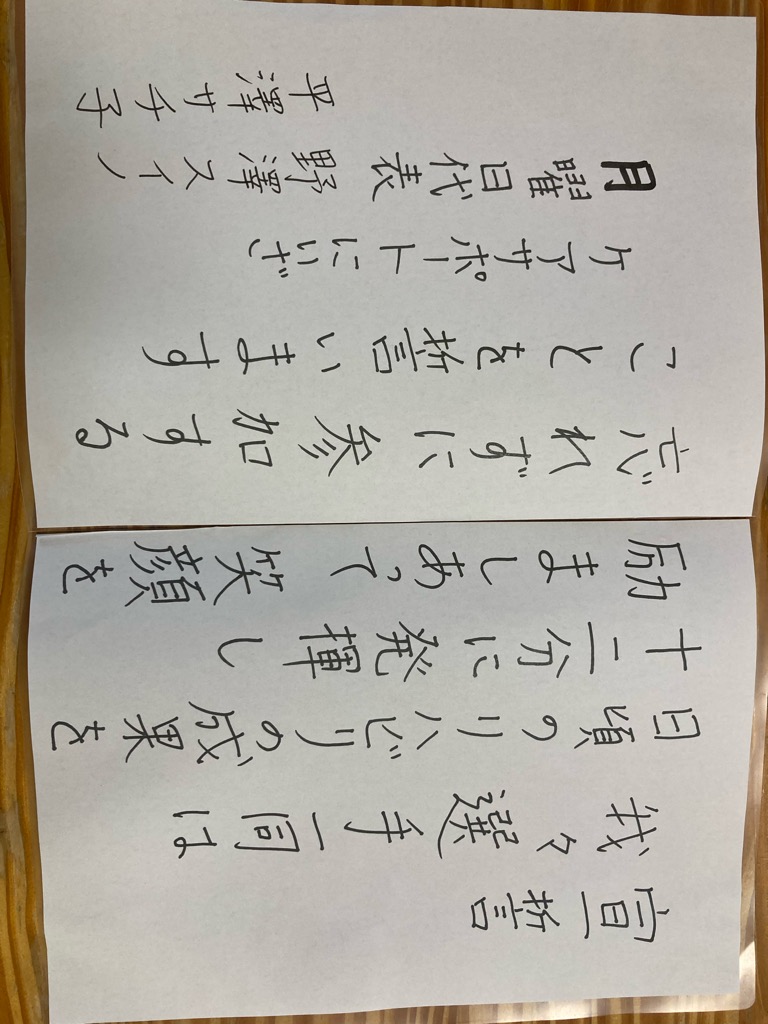 宣誓
我々選手一同は
日頃のリハビリの成果を
十二分に発揮し
励ましあって笑顔を
忘れずに参加する
ことを誓います
ケアサポートにいざ
月曜日代表 野澤スイノ
平澤サチ子